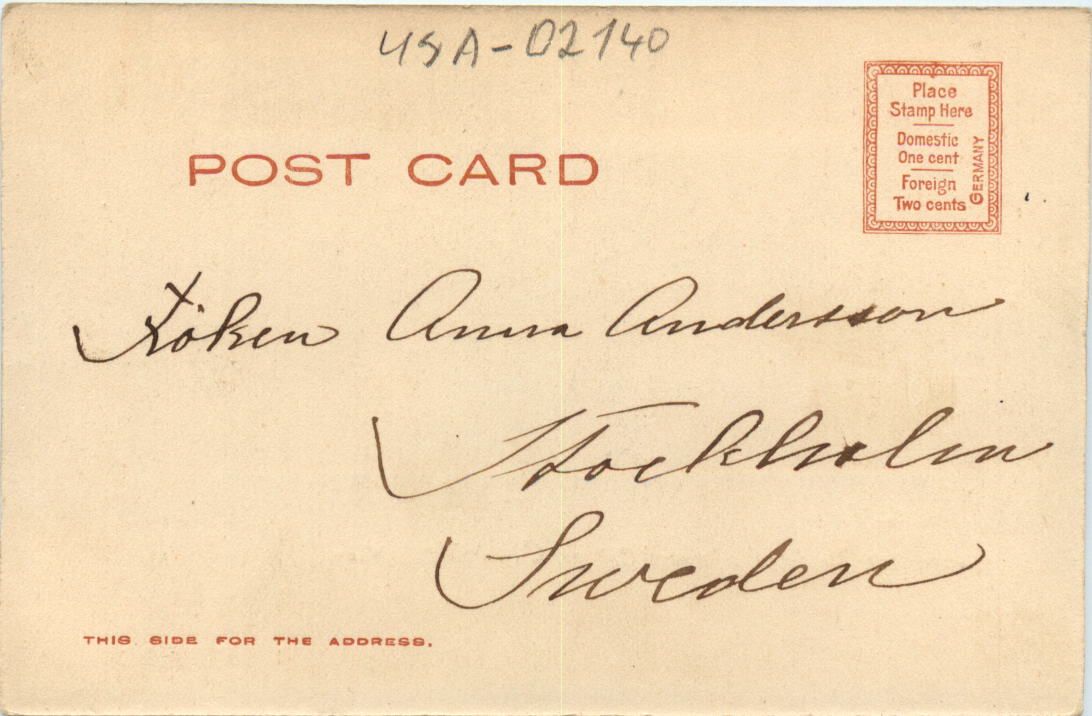 USA-02140
POST CARD
Place
Stamp Here
Domestic
One cent
Foreign
Two cents
GERMANY
Fröken Anna Andersson
Stockholm
Sweden
THIS SIDE FOR THE ADDRESS.